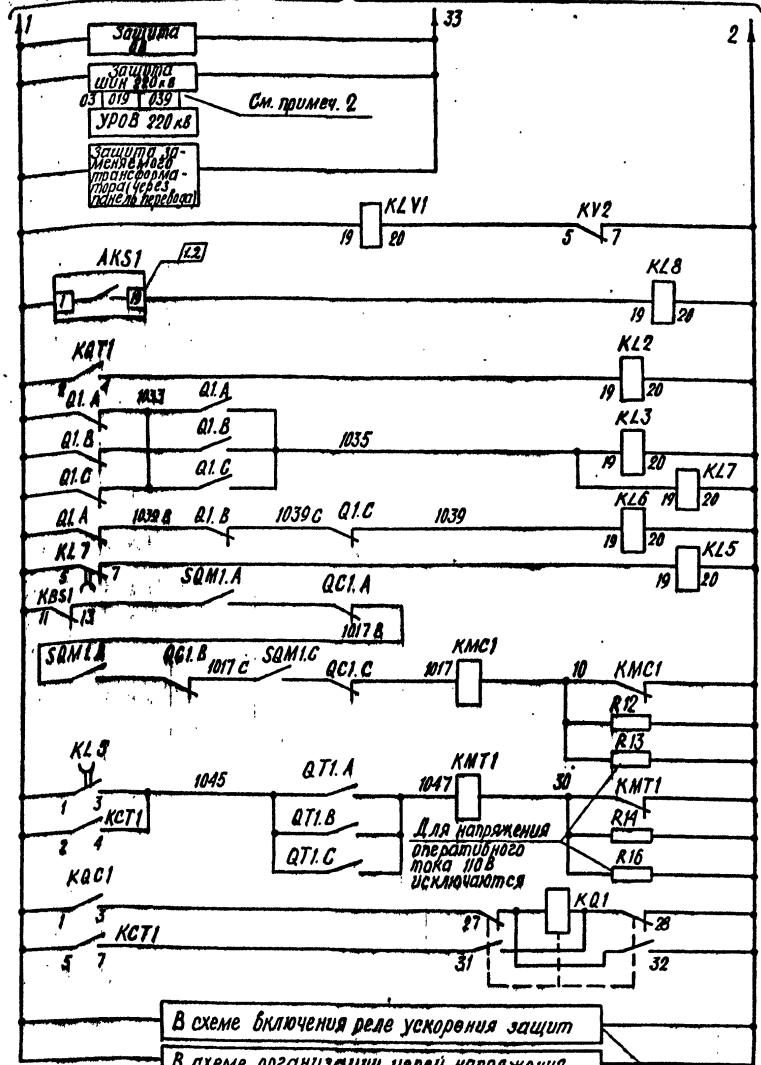 1
33
2
Защита
Защита
шин 220 кв
03 019 039
См. примеч. 2
УРОВ 220 кв
Защита за-
меняемого
трансформа-
тора (через
панель перевода)
KLV1
KV2
19 20
5 7
AKS1
1.2
KL8
1
19
19 20
KQT1
KL2
4
19 20
Q1.A
1033
Q1.A
KL3
Q1.B
Q1.B
1035
19 20
Q1.C
Q1.C
KL7
19 20
Q1.A
1039 В
Q1.B
1039 С
Q1.C
1039
KL6
19 20
KL7
KL5
5 7
19 20
KBS1
SQM1.A
QC1.A
11 13
1017 В
QC1.B
1017 С
SQM1.C
QC1.C
1017
KMC1
10
KMC1
R12
R13
1045
QT1.A
1047
KMT1
30
KMT1
1 3
KCT1
2 4
QT1.B
R14
QT1.C
R16
Для напряжения
оперативного
тока 110 В
исключаются
KQC1
KQ1
1 3
27
28
KCT1
5 7
31
32
В схеме включения реле ускорения защит
В схеме организации цепей напряжения